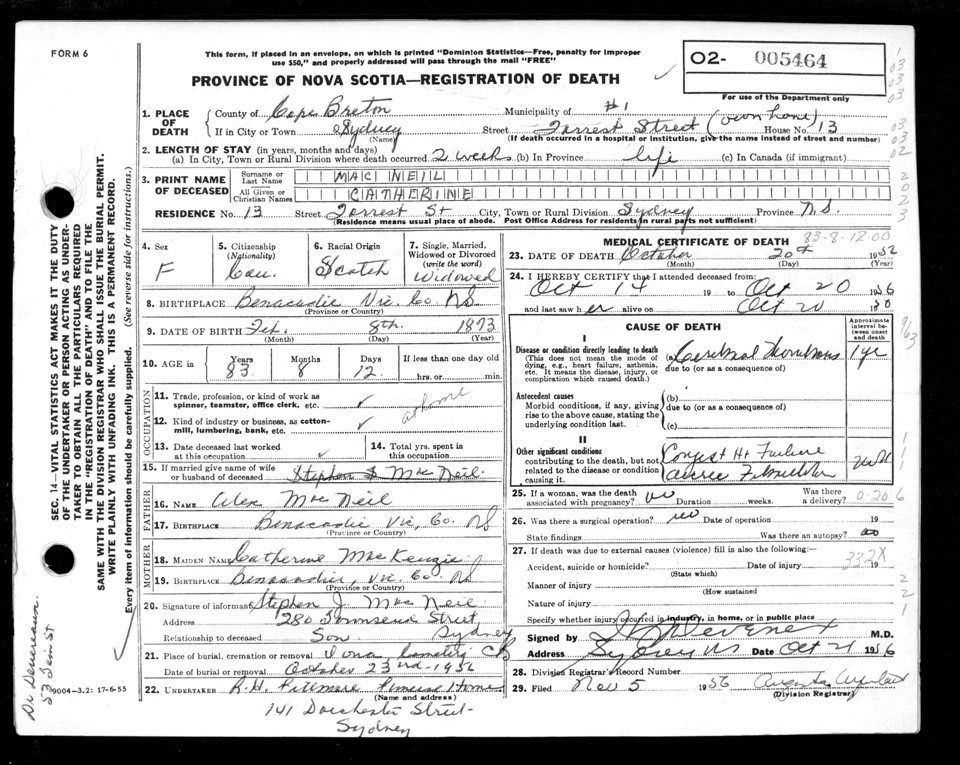 FORM 6
This form, if placed in an envelope, on which is printed "Dominion Statistics—Free, penalty for improper
use $50," and properly addressed will pass through the mail "FREE"
PROVINCE OF NOVA SCOTIA—REGISTRATION OF DEATH
O2- 005464
For use of the Department only
1. PLACE OF DEATH
County of Cape Breton Municipality of #1
If in City or Town Sydney Street Forrest Street (own home) House No. 13
(Name) (If death occurred in a hospital or institution, give the name instead of street and number)
2. LENGTH OF STAY (in years, months and days)
(a) In City, Town or Rural Division where death occurred 2 weeks (b) In Province life (c) In Canada (if immigrant)
3. PRINT NAME OF DECEASED
Surname or Last Name MAC NEIL
All Given or Christian Names CATHERINE
RESIDENCE No. 13 Street Forrest St City, Town or Rural Division Sydney Province N.S.
(Residence means usual place of abode. Post Office Address for residents in rural parts not sufficient)
4. Sex F
5. Citizenship (Nationality) Can.
6. Racial Origin Scotch
7. Single, Married, Widowed or Divorced (write the word) Widowed
8. BIRTHPLACE Benacadie Vic. Co. NS
(Province or Country)
9. DATE OF BIRTH Feb. 8th. 1873
(Month) (Day) (Year)
10. AGE in Years 83 Months 8 Days 12 If less than one day old
hrs. or min.
OCCUPATION
11. Trade, profession, or kind of work as
spinner, teamster, office clerk, etc. ✓
at home
12. Kind of industry or business, as cotton-
mill, lumbering, bank, etc. ✓
13. Date deceased last worked
at this occupation ✓
14. Total yrs. spent in
this occupation
15. If married give name of wife
or husband of deceased Stephen Mac Neil.
FATHER
16. NAME Alex Mac Neil
17. BIRTHPLACE Benacadie Vic, Co. NS
(Province or Country)
MOTHER
18. MAIDEN NAME Catherine MacKenzie
19. BIRTHPLACE Benacadie, Vic. Co. NS
(Province or Country)
20. Signature of informant Stephen J. MacNeil
Address 280 Townsend Street
Sydney
Relationship to deceased Son
21. Place of burial, cremation or removal Iona Cemetery CB
Date of burial or removal October 23rd-1956
22. UNDERTAKER R.H. Fillmore Funeral Home
(Name and address)
141 Dorchester Street
Sydney
MEDICAL CERTIFICATE OF DEATH
83-8-12.00
23. DATE OF DEATH October 20th 1956
(Month) (Day) (Year)
24. I HEREBY CERTIFY that I attended deceased from:
Oct 14 19 to Oct 20 1956
and last saw her alive on Oct 20 19
CAUSE OF DEATH
Approximate interval between onset and death
I
Disease or condition directly leading to death
(This does not mean the mode of
dying, e.g., heart failure, asthenia,
etc. It means the disease, injury, or
complication which caused death.)
(a) Cerebral Thrombosis 1 yr
due to (or as a consequence of)
Antecedent causes
Morbid conditions, if any, giving
rise to the above cause, stating the
underlying condition last.
(b)
due to (or as a consequence of)
(c)
II
Other significant conditions
contributing to the death, but not
related to the disease or condition
causing it.
Congest Ht Failure
25. If a woman, was the death
associated with pregnancy? no Duration weeks. Was there
a delivery?
0-20-6
26. Was there a surgical operation? no Date of operation 19
State findings Was there an autopsy? no
27. If death was due to external causes (violence) fill in also the following:—
Accident, suicide or homicide? Date of injury 19
332X
(State which)
Manner of injury
(How sustained)
Nature of injury
Specify whether injury occurred in industry, in home, or in public place
Signed by M.D.
Address Sydney NS Date Oct 21 1956
28. Division Registrar's Record Number
29. Filed Nov 5 1956 Augusta
(Division Registrar)
SEC. 14—VITAL STATISTICS ACT MAKES IT THE DUTY
OF THE UNDERTAKER OR PERSON ACTING AS UNDER-
TAKER TO OBTAIN ALL THE PARTICULARS REQUIRED
IN THE "REGISTRATION OF DEATH" AND TO FILE THE
SAME WITH THE DIVISION REGISTRAR WHO SHALL ISSUE THE BURIAL PERMIT.
WRITE PLAINLY WITH UNFADING INK. THIS IS A PERMANENT RECORD.
Every item of Information should be carefully supplied. (See reverse side for instructions.)
9004—3.2: 17-6-55